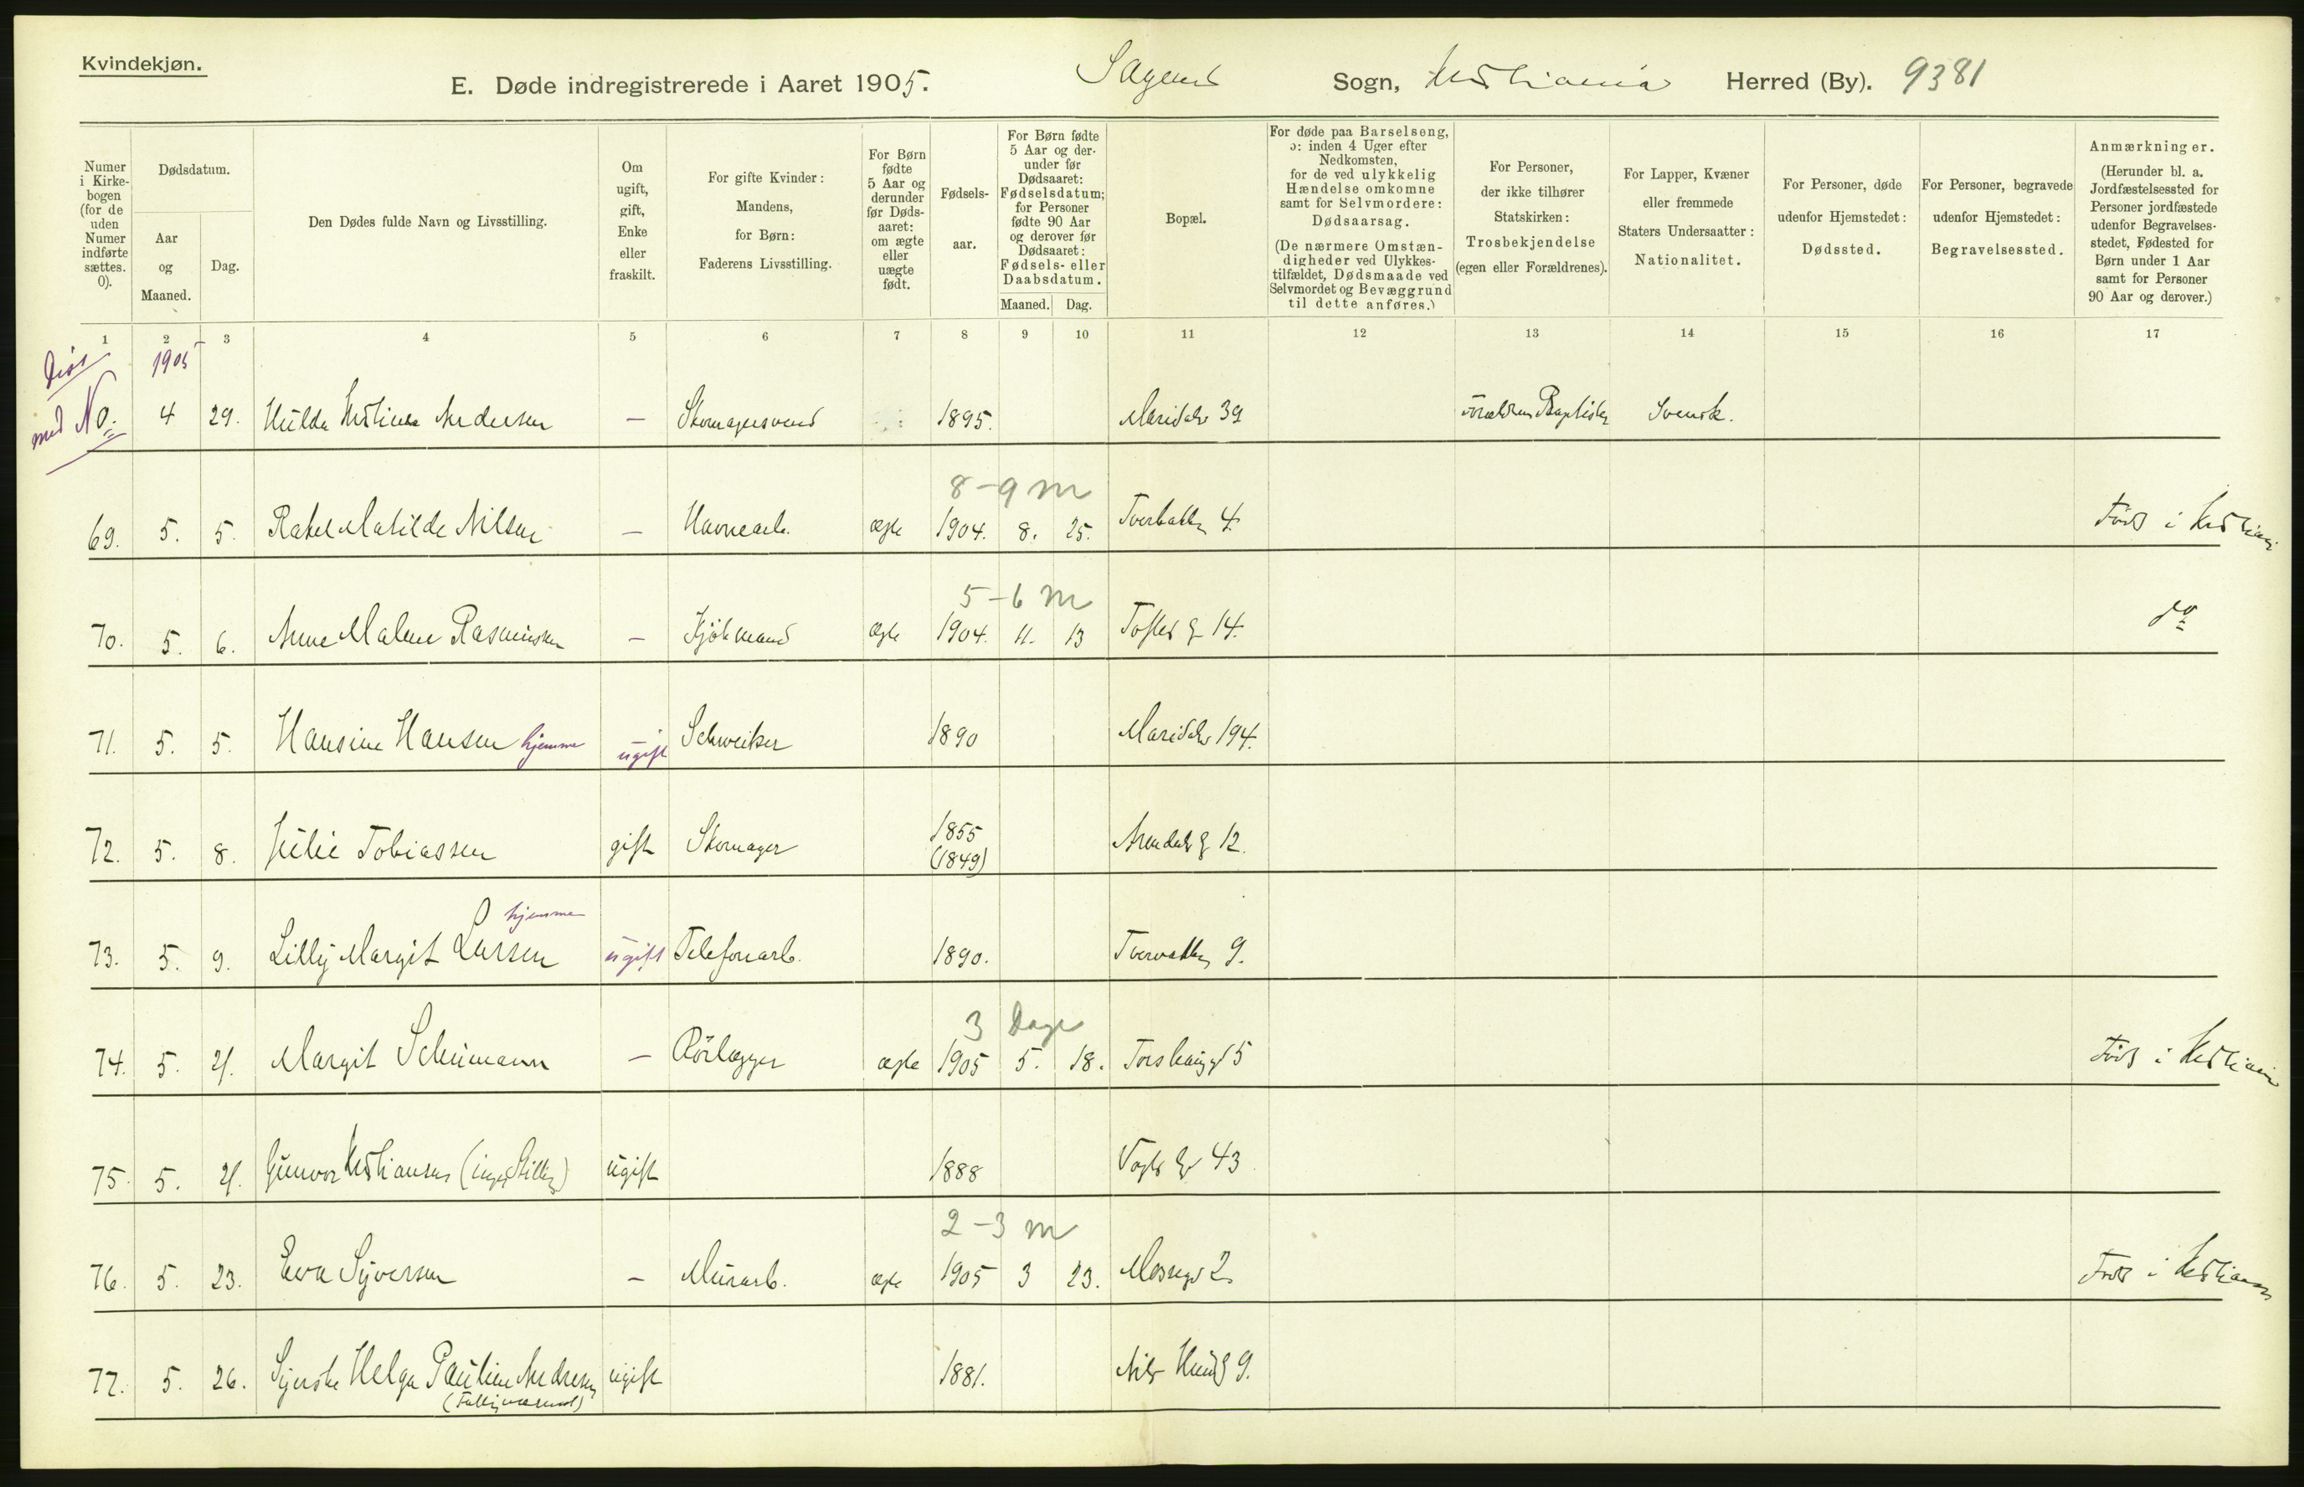 Kvindekjøn.
E. Døde indregistrerede i Aaret 1905. Sagene Sogn, Kristiania Herred (By). 9381
Numer i Kirkebogen (for de uden Numer indførte sættes. 0).
Dødsdatum.
Aar og Maaned.
Dag.
Den Dødes fulde Navn og Livsstilling.
Om ugift, gift, Enke eller fraskilt.
For gifte Kvinder: Mandens, for Børn: Faderens Livsstilling.
For Børn fødte 5 Aar og derunder før Dødsaaret: om ægte eller uægte født.
Fødselsaar.
For Børn fødte 5 Aar og derunder før Dødsaaret: Fødselsdatum; for Personer fødte 90 Aar og derover før Dødsaaret: Fødsels- eller Daabsdatum.
Maaned. Dag.
Bopæl.
For døde paa Barselseng, ɔ: inden 4 Uger efter Nedkomsten, for de ved ulykkelig Hændelse omkomne samt for Selvmordere: Dødsaarsag.
(De nærmere Omstændigheder ved Ulykkestilfældet, Dødsmaade ved Selvmordet og Bevæggrund til dette anføres.)
For Personer, der ikke tilhører Statskirken: Trosbekjendelse (egen eller Forældrenes).
For Lapper, Kvæner eller fremmede Staters Undersaatter: Nationalitet.
For Personer, døde udenfor Hjemstedet: Dødssted.
For Personer, begravede udenfor Hjemstedet: Begravelsessted.
Anmærkninger.
(Herunder bl. a. Jordfæstelsessted for Personer jordfæstede udenfor Begravelsesstedet, Fødested for Børn under 1 Aar samt for Personer 90 Aar og derover.)
1 2 3 4 5 6 7 8 9 10 11 12 13 14 15 16 17
Diss 1905
med No. 4 29. Hulda Kristine Andersen — Skomagersvend 1895. Maridalsv 39 Forældrene Baptister Svensk.
8-9 m
69. 5. 5. Rakel Matilde Nilsen — Havnearb. ægte 1904. 8. 25. Tverbakken 4. Født i Kristiania
5-6 m
70. 5. 6. Anne Malene Rasmussen — Kjøbmand ægte 1904. 11. 13 Toftes g 14. do
71. 5. 5. Hansine Hansen hjemme ugift Schweitser 1890 Maridalsv 194.
72. 5. 8. Julie Tobiassen gift Skomager 1855 (1849) Arendals g 12.
hjemme
73. 5. 9. Lilly Margit Larsen ugift Telefonarb. 1890. Tverbakken 9.
3 Dage
74. 5. 21. Margit Schumann — Rörlægger ægte 1905 5. 18. Torshaug 5 Født i Kristiania
75. 5. 21. Gunvor Kristiansen (ingen Stilling) ugift 1888 Vogts g 43
2-3 m
76. 5. 23. Eva Syversen — Murarb. ægte 1905 3 23. Mosseg 2. Født i Kristiania
77. 5. 26. Syerske Helga Pauline Andresen ugift 1881. Nils Huus g 9.